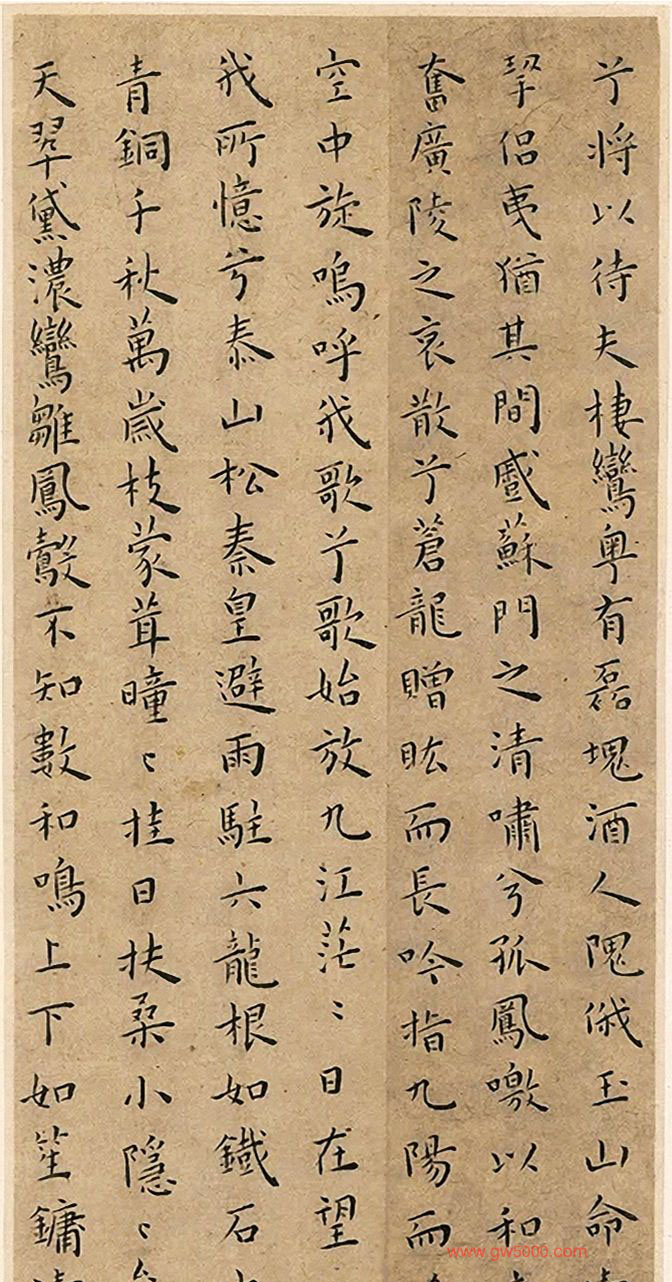 兮將以待夫棲鸞粤有磊塊酒人隗俄玉山命
挈侶夷猶其間蹙蘇門之清嘯兮孤鳳噭以和
奮廣陵之哀散兮蒼龍贈眩而長吟指九陽而
空中旋嗚呼我歌兮歌始放九江茫〻日在望
我所憶兮泰山松秦皇避雨駐六龍根如鐵石
青銅千秋萬歲枝蒙茸曈〻挂日扶桑小隱〻
天翠黛濃鸞雛鳳鷇不知數和鳴上下如笙鏞
www.gw5000.com